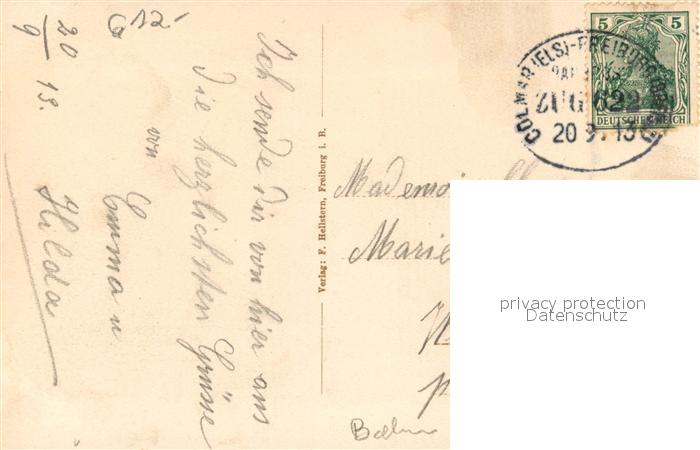 20/9 13.
G 12.-
Ich sende dir von hier aus
die herzlichsten Grüsse
von
Emma u
Hilda
Verlag: F. Hellstern, Freiburg i. B.
5 5
DEUTSCHES REICH
COLMAR (ELS)-FREIBURG
ZUG 622
20 9. 13
Mademoi
Marie
privacy protection
Datenschutz